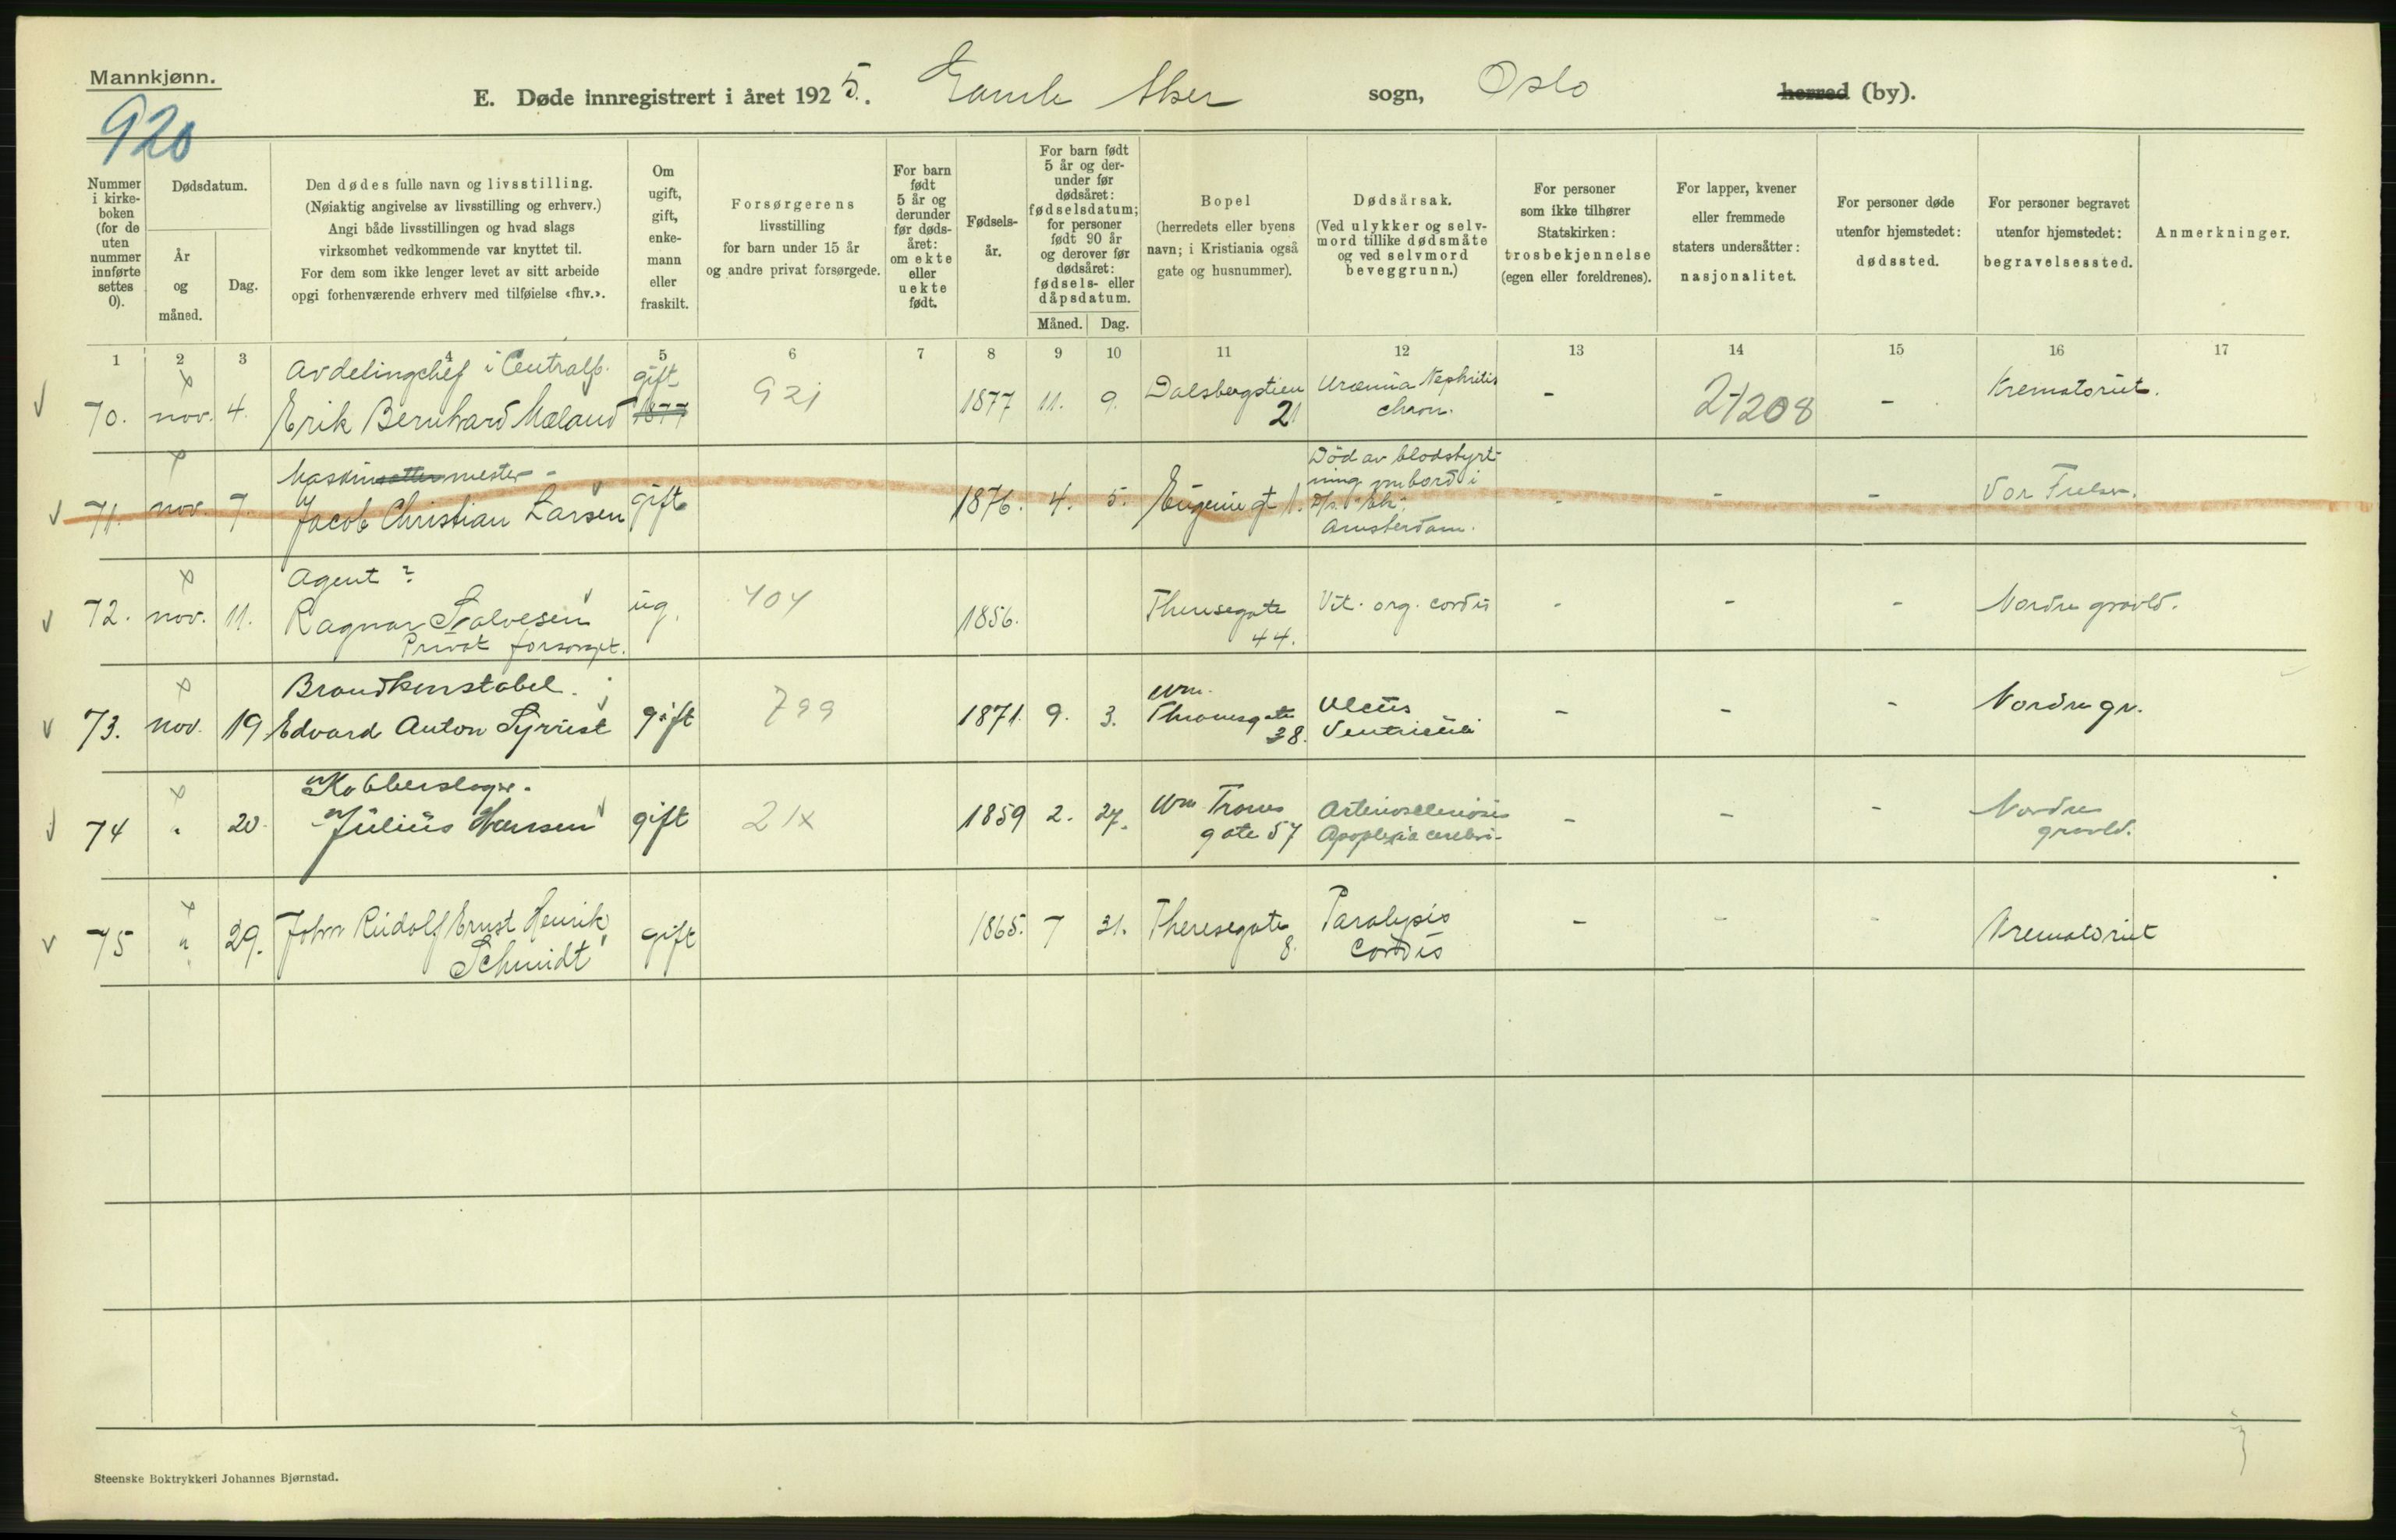 Mannkjønn.
920
E. Døde innregistrert i året 1925. Gamle Aker sogn, Oslo herred (by).
Nummer i kirke-boken (for de uten nummer innførte settes 0).
Dødsdatum.
År og måned.
Dag.
Den dødes fulle navn og livsstilling.
(Nøiaktig angivelse av livsstilling og erhverv.)
Angi både livsstillingen og hvad slags
virksomhet vedkommende var knyttet til.
For dem som ikke lenger levet av sitt arbeide
opgi forhenværende erhverv med tilføielse «fhv.».
Om ugift, gift, enke-mann eller fraskilt.
Forsørgerens
livsstilling
for barn under 15 år
og andre privat forsørgede.
For barn født 5 år og derunder før døds-året: om ekte eller uekte født.
Fødsels-år.
For barn født 5 år og der-under før dødsåret: fødselsdatum; for personer født 90 år og derover før dødsåret: fødsels- eller dåpsdatum.
Måned. Dag.
Bopel
(herredets eller byens
navn; i Kristiania også
gate og husnummer).
Dødsårsak.
(Ved ulykker og selv-
mord tillike dødsmåte
og ved selvmord
beveggrunn.)
For personer
som ikke tilhører
Statskirken:
trosbekjennelse
(egen eller foreldrenes).
For lapper, kvener
eller fremmede
staters undersåtter:
nasjonalitet.
For personer døde
utenfor hjemstedet:
dødssted.
For personer begravet
utenfor hjemstedet:
begravelsessted.
Anmerkninger.
1 2 3 4 5 6 7 8 9 10 11 12 13 14 15 16 17
Avdelingchef i Centralf.
70. nov. 4. Erik Bernhard Mæland gift 1877 921 1877 11. 9. Dalsbergstien 21 Uræmia Nephritis chron. - 21208 - Krematoriet.
Maskinmester
71. nov. 7. Jacob Christian Larsen gift 1876. 4. 5. Eugenie gt 1. Død av blodstyrt-
ning ombord i
Amsterdam. - - - Vor Frelser.
Agent ?
72. nov. 11. Ragnar Salvesen ug. 404 1856. Theresegate 44. Vit. org. cordis - - - Nordre gravld.
Privat forsørget.
Brandkonstabel.
73. nov. 19 Edvard Anton Syvrist gift 799 1871. 9. 3. Wm. Thranesgate 38. Ulcus Ventriculi - - - Nordre gr.
Kobberslager.
74 " 20. Julius Hansen gift 21x 1859 2. 27. Wm Tranes gate 57 Arteriosclerosis Apoplexia cerebri - - - Nordre gravld.
75 " 29. John Rudolf Ernst Henrik Schmidt gift 1865. 7 31. Theresegate 8. Paralysis Cordis - - - Krematoriet
Steenske Boktrykkeri Johannes Bjørnstad.